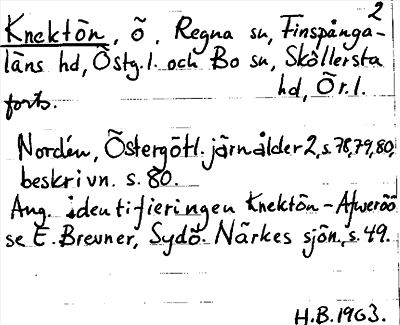 2
Knektön, ö, Regna sn, Finspånga-
läns hd, Östg.l. och Bo sn, Sköllersta
forts. hd, Ör.l.
Nordén, Östergötl. järnålder 2, s. 78, 79, 80,
beskrivn. s. 80.
Ang. identifieringen Knektön - Afweröö
se E. Brevner, Sydö. Närkes sjön., s. 49.
H.B. 1963.